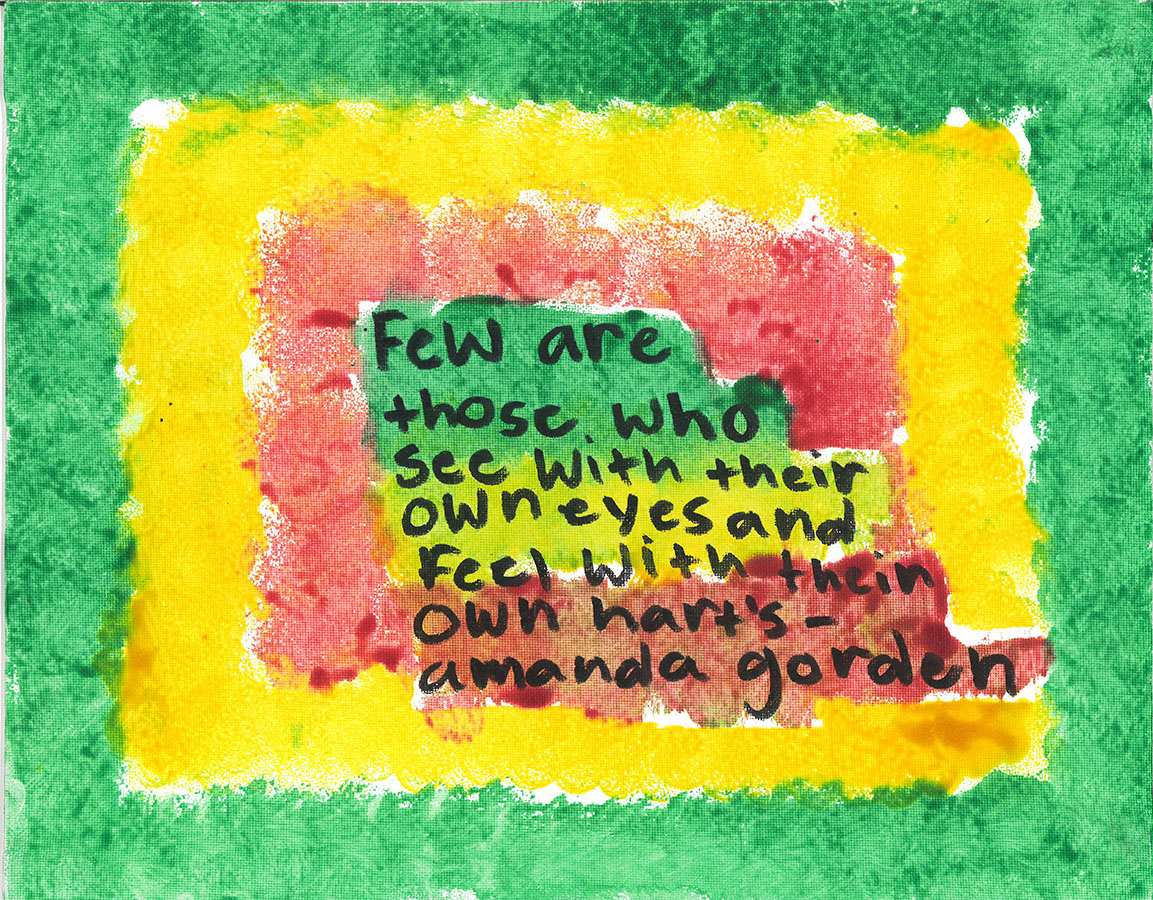 Few are
those who
see with their
own eyes and
Feel with thein
own hart's -
amanda gorden